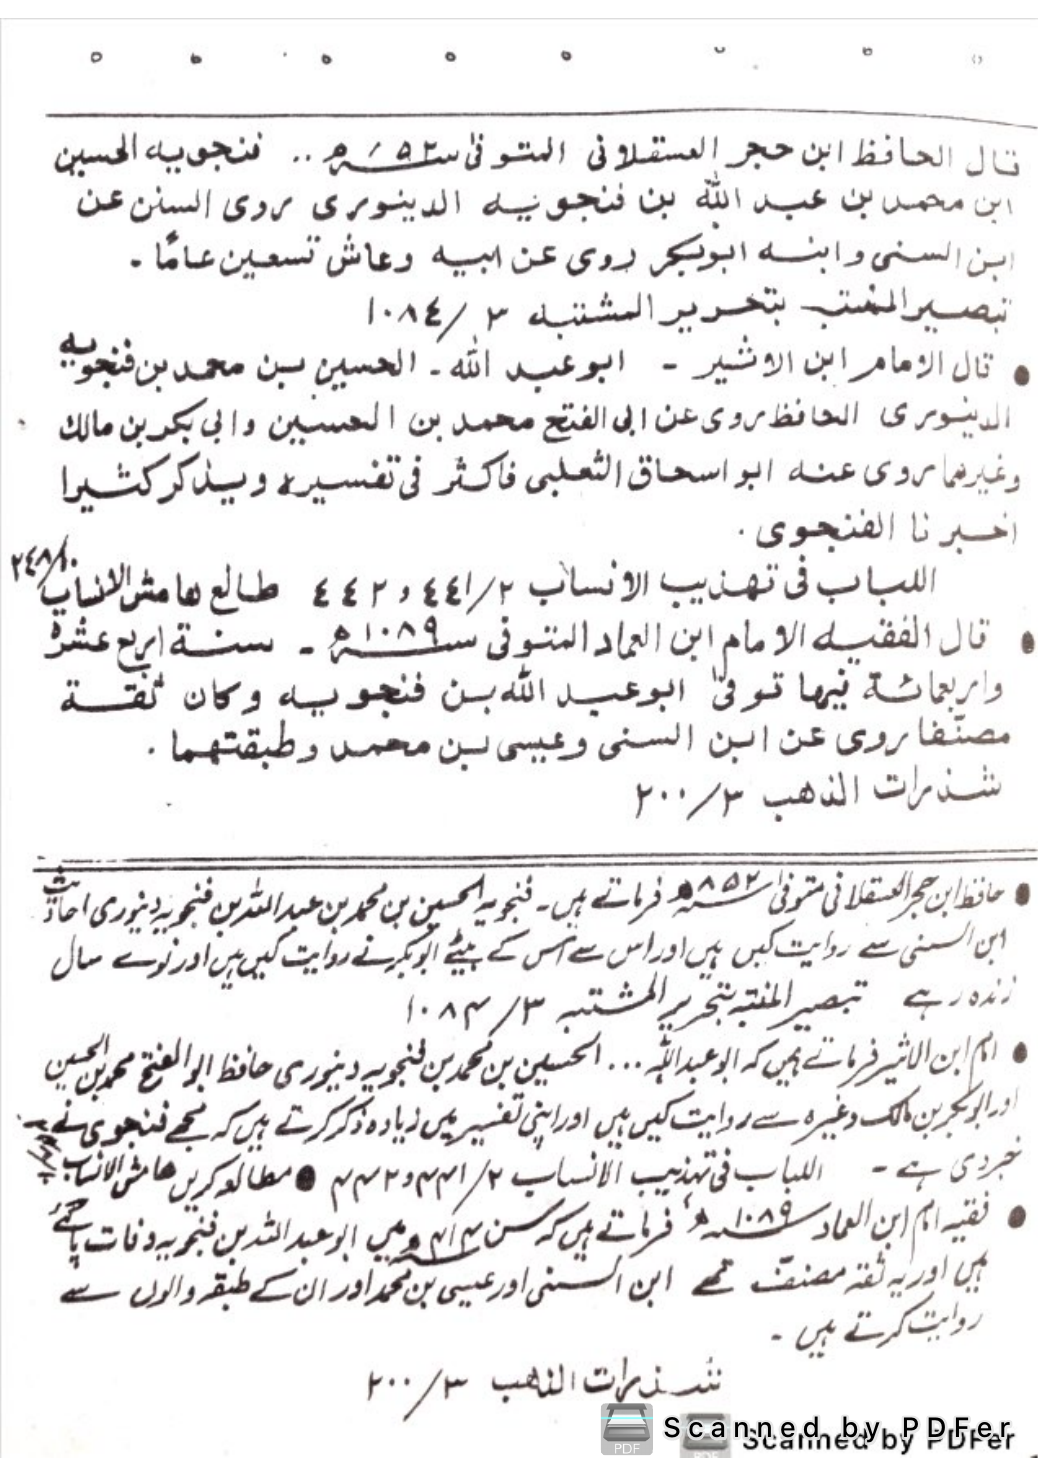 قال الحافظ ابن حجر العسقلانی المتوفیٰ سنہ ۸۵۲ھ .. فنجویه الحسین
ابن محمد بن عبد اللہ بن فنجویه الدینوری روی السنن عن
ابن السنی وابنه ابوبکر روی عن ابیه وعاش تسعین عامًا ۔
تبصیر المنتبه بتحریر المشتبه ۳/۱۰۸٤
● قال الامام ابن الاثیر ۔ ابو عبد اللہ ۔ الحسین بن محمد بن فنجویه
الدینوری الحافظ روی عن ابی الفتح محمد بن الحسین وابی بکر بن مالك
وغیرهما روی عنه ابو اسحاق الثعلبی فاکثر فی تفسیره ویذکر کثیرا
اخبرنا الفنجوی .
اللباب فی تهذیب الانساب ۲/٤٤۱ و ٤٤۲ طالع هامش الانساب ۱۰/۲٤۸
● قال الفقیه الامام ابن العماد المتوفی سنہ ۱۰۸۹ھ ۔ سنة اربع عشرة
واربعمائة فیها توفیٰ ابو عبد اللہ بن فنجویه وکان ثقة
مصنّفا روی عن ابن السنی وعیسی بن محمد وطبقتهما .
شذرات الذهب ۳/۲۰۰
● حافظ ابن حجر العسقلانی متوفیٰ سنہ ۸۵۲ھ فرماتے ہیں ۔ فنجویہ الحسین بن محمد بن عبد اللہ بن فنجویہ دینوری احادیث
ابن السنی سے روایت کیں ہیں اور اس سے اس کے بیٹے ابوبکر نے روایت کیں ہیں اور نوے سال
زندہ رہے تبصیر المنتبہ بتحریر المشتبہ ۳/۱۰۸۴
● امام ابن الاثیر فرماتے ہیں کہ ابو عبد اللہ ... الحسین بن محمد بن فنجویہ دینوری حافظ ابو الفتح محمد بن الحسین
اور ابوبکر بن مالک وغیرہ سے روایت کیں ہیں اور اپنی تفسیر میں زیادہ ذکر کرتے ہیں کہ مجھے فنجوی نے
خبر دی ہے ۔ اللباب فی تہذیب الانساب ۲/۴۴۱ و ۴۴۲ ● مطالعہ کریں ھامش الانساب
● فقیہ امام ابن العماد سنہ ۱۰۸۹ھ فرماتے ہیں کہ سن ۴۱۴ھ میں ابو عبد اللہ بن فنجویہ وفات پا گئے
ہیں اور یہ ثقہ مصنف تھے ابن السنی اور عیسی بن محمد اور ان کے طبقہ والوں سے
روایت کرتے ہیں ۔
شذرات الذهب ۳/۲۰۰
PDF Scanned by PDFer
PDF Scanned by PDFer